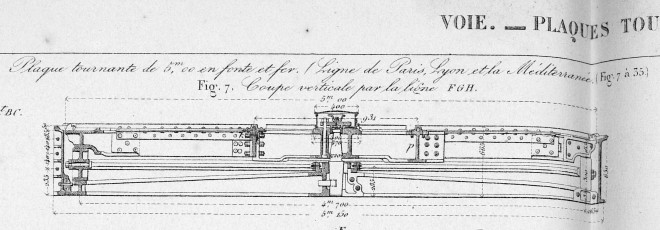 VOIE. — PLAQUES TOU
Plaque tournante de 5,m 00 en fonte et fer. (Ligne de Paris, Lyon et la Méditerranée. (Fig. 7 à 35)
Fig. 7. Coupe verticale par la ligne FGH.
t BC.
5m 00
400
931
P
4m 700
5m 150